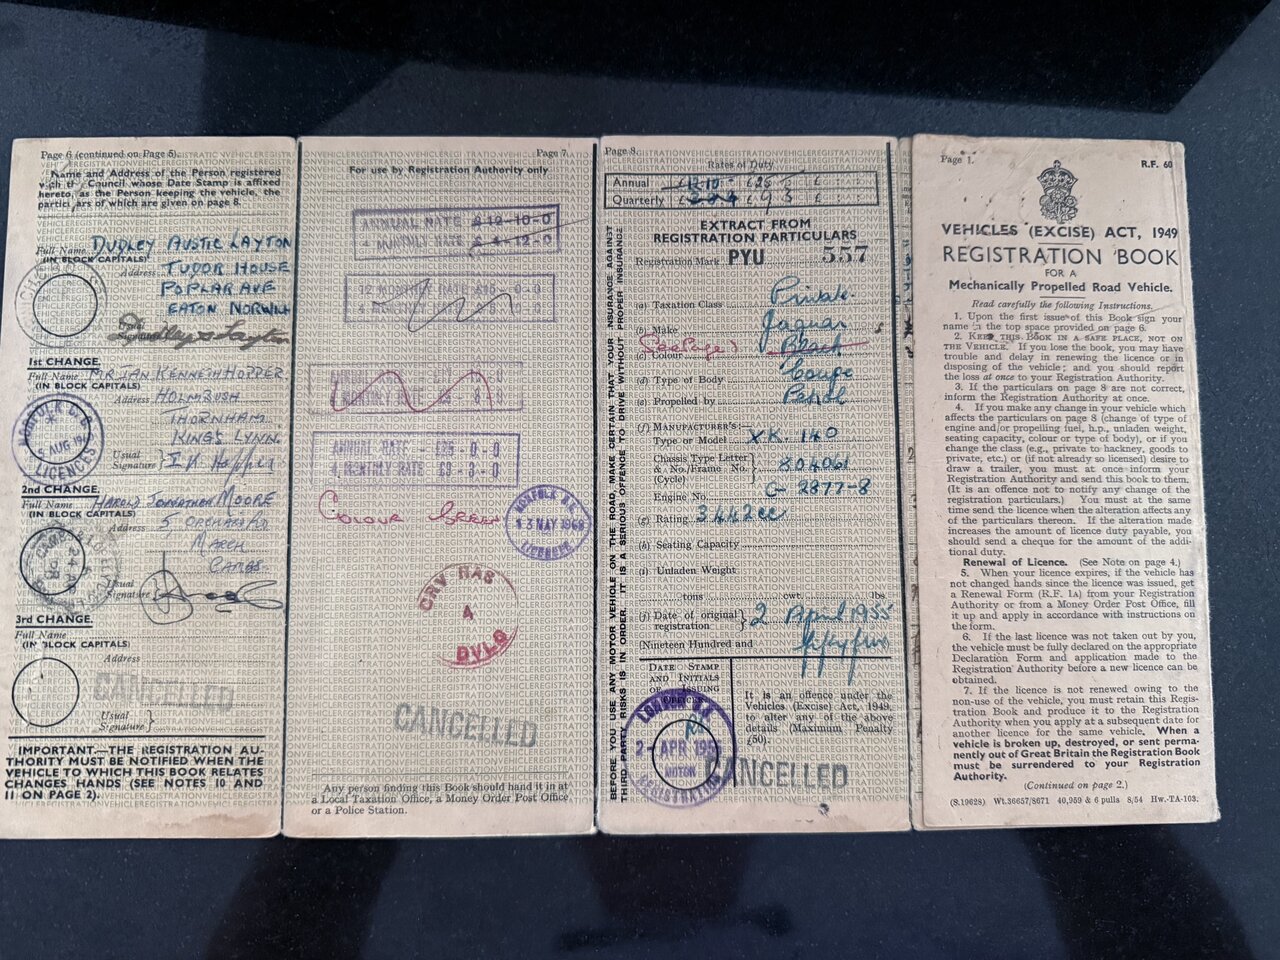 Page 6 (continued on Page 5).
Name and Address of the Person registered
with the Council whose Date Stamp is affixed
hereto, as the Person keeping the vehicle, the
particulars of which are given on page 8.
Full Name
(IN BLOCK CAPITALS)
DUDLEY AUSTIC LAYTON
Address TUDOR HOUSE
POPLAR AVE
EATON NORWICH
1st CHANGE.
Full Name MR IAN KENNETH HOPPER
(IN BLOCK CAPITALS)
Address HOLMBUSH
THORNHAM
KINGS LYNN
Usual
Signature
NORFOLK C.C.
AUG
LICENCES
2nd CHANGE.
Full Name HAROLD JONATHAN MOORE
(IN BLOCK CAPITALS)
Address 5 ORCHARD RD
MARCH
CAMBS.
Usual
Signature
3rd CHANGE.
Full Name
(IN BLOCK CAPITALS)
Address
CANCELLED
Usual
Signature
IMPORTANT.—THE REGISTRATION AU-
THORITY MUST BE NOTIFIED WHEN THE
VEHICLE TO WHICH THIS BOOK RELATES
CHANGES HANDS (SEE NOTES 10 AND
11 ON PAGE 2).
Page 7.
For use by Registration Authority only
ANNUAL RATE £12-10-0
4 MONTHLY RATE £4-12-0
12 MONTHLY RATE £15-0-0
ANNUAL RATE - £25-0-0
4 MONTHLY RATE £9-3-0
Colour Green
NORFOLK C.C.
13 MAY 1968
LICENCES
CRV HAS
4
DVLC
CANCELLED
Any person finding this Book should hand it in at
a Local Taxation Office, a Money Order Post Office
or a Police Station.
BEFORE YOU USE ANY MOTOR VEHICLE ON THE ROAD, MAKE CERTAIN THAT YOUR INSURANCE AGAINST
THIRD PARTY RISKS IS IN ORDER. IT IS A SERIOUS OFFENCE TO DRIVE WITHOUT PROPER INSURANCE
Page 8.
Rates of Duty
Annual £12-10- £25 £
Quarterly £ £9 3 £
EXTRACT FROM
REGISTRATION PARTICULARS
Registration Mark PYU 557
(a) Taxation Class Private
(b) Make Jaguar
See Page 7
(c) Colour Black
(d) Type of Body Coupe
(e) Propelled by Petrol
(f) MANUFACTURER'S:
Type or Model XK. 140
Chassis Type Letter
& No./Frame No.
(Cycle)
804061
Engine No. G-2877-8
(g) Rating 3442cc
(h) Seating Capacity
(i) Unladen Weight
tons cwt. lbs
(j) Date of original
registration
2 April 1955
Nineteen Hundred and fiftyfive
DATE STAMP
AND INITIALS
OF ISSUING
LONDON C.C.
2 - APR 195
REGISTRATION
It is an offence under the
Vehicles (Excise) Act, 1949,
to alter any of the above
details (Maximum Penalty
£50).
CANCELLED
Page 1.
R.F. 60
VEHICLES (EXCISE) ACT, 1949
REGISTRATION BOOK
FOR A
Mechanically Propelled Road Vehicle.
Read carefully the following Instructions.
1. Upon the first issue of this Book sign your
name in the top space provided on page 6.
2. KEEP THIS BOOK IN A SAFE PLACE, NOT ON
THE VEHICLE. If you lose the book, you may have
trouble and delay in renewing the licence or in
disposing of the vehicle; and you should report
the loss at once to your Registration Authority.
3. If the particulars on page 8 are not correct,
inform the Registration Authority at once.
4. If you make any change in your vehicle which
affects the particulars on page 8 (change of type of
engine and/or propelling fuel, h.p., unladen weight,
seating capacity, colour or type of body), or if you
change the class (e.g., private to hackney, goods to
private, etc.) or (if not already so licensed) desire to
draw a trailer, you must at once inform your
Registration Authority and send this book to them.
(It is an offence not to notify any change of the
registration particulars.) You must at the same
time send the licence when the alteration affects any
of the particulars thereon. If the alteration made
increases the amount of licence duty payable, you
should send a cheque for the amount of the addi-
tional duty.
Renewal of Licence. (See Note on page 4.)
5. When your licence expires, if the vehicle has
not changed hands since the licence was issued, get
a Renewal Form (R.F. 1A) from your Registration
Authority or from a Money Order Post Office, fill
it up and apply in accordance with instructions on
the form.
6. If the last licence was not taken out by you,
the vehicle must be fully declared on the appropriate
Declaration Form and application made to the
Registration Authority before a new licence can be
obtained.
7. If the licence is not renewed owing to the
non-use of the vehicle, you must retain this Regis-
tration Book and produce it to the Registration
Authority when you apply at a subsequent date for
another licence for the same vehicle. When a
vehicle is broken up, destroyed, or sent perma-
nently out of Great Britain the Registration Book
must be surrendered to your Registration
Authority.
(Continued on page 2.)
(S.19628) Wt.36657/8671 40,959 & 6 pulls 8/54 Hw.-TA-103.